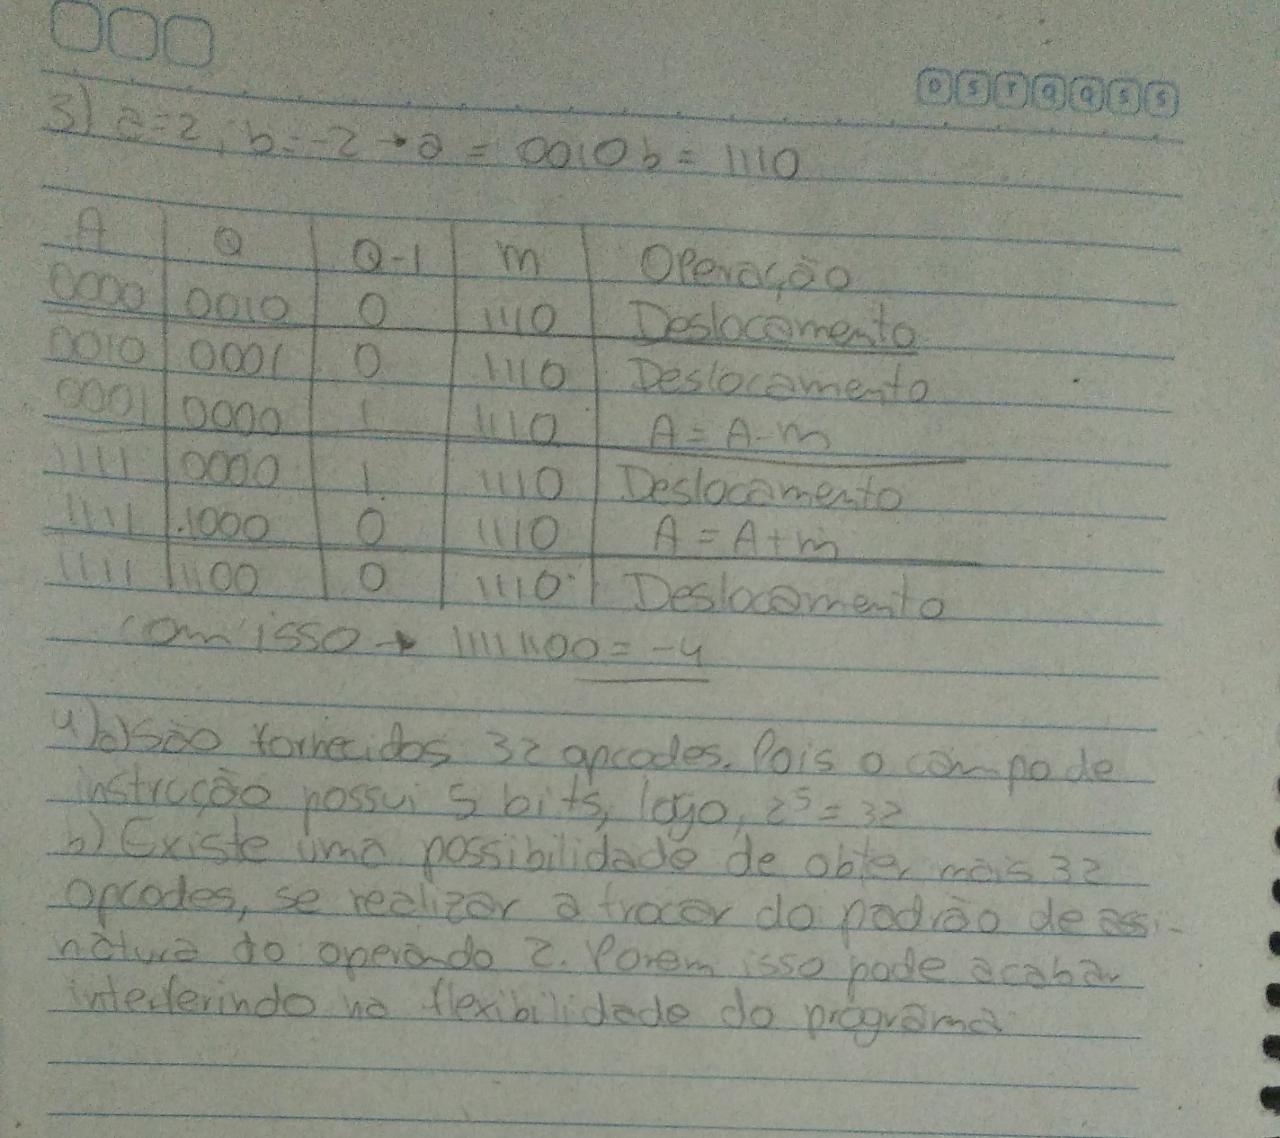 D S T Q Q S S
3) a=2, b=-2 → a = 0010 b = 1110
A Q Q-1 m Operação
0000 0010 0 1110 Deslocamento
0010 0001 0 1110 Deslocamento
0001 0000 1 1110 A = A-m
1111 0000 1 1110 Deslocamento
1111 1000 0 1110 A = A+m
1111 1100 0 1110 Deslocamento
com isso → 11111100 = -4
4)a)São fornecidos 32 opcodes. Pois o campo de
instrução possui 5 bits, logo, 2⁵ = 32
b) Existe uma possibilidade de obter mais 32
opcodes, se realizar a trocar do padrão de assi-
natura do operando 2. Porem isso pode acabar
interferindo na flexibilidade do programa